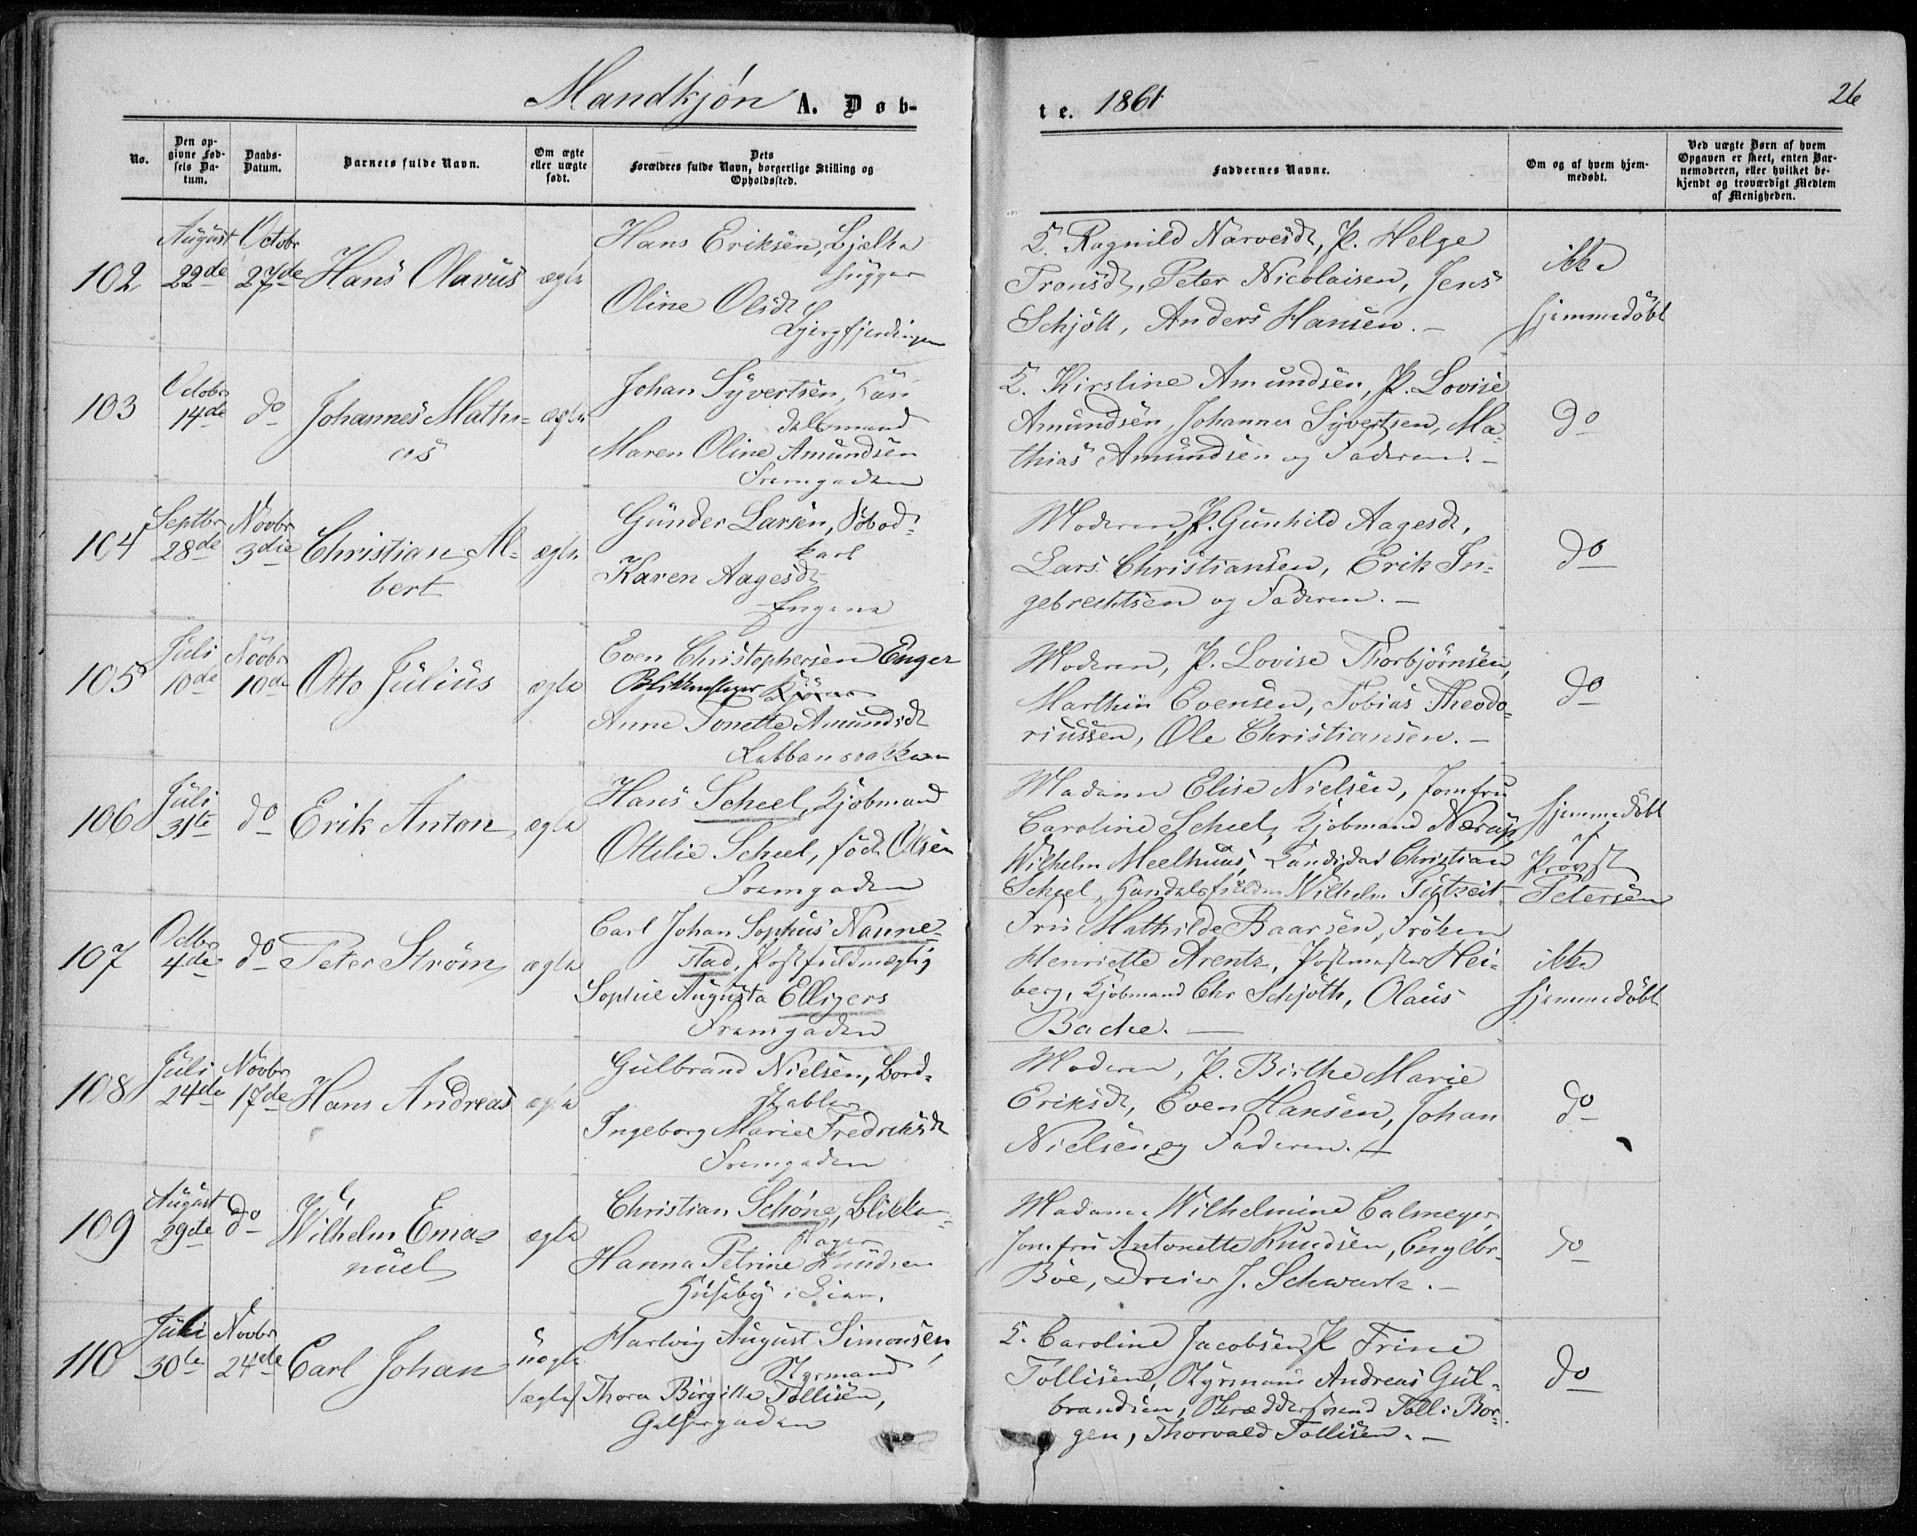 Mandkjøn A. Døb-
te. 1861
26
No.
Den op-
givne Fød-
sels Da-
tum.
Daabs-
Datum.
Barnets fulde Navn.
Om ægte
eller uægte
født.
Dets
Forældres fulde Navn, borgerlige Stilling og
Opholdssted.
Faddernes Navne.
Om og af hvem hjem-
medøbt.
Ved uægte Børn af hvem
Opgaven er skeet, enten Bar-
nemoderen, eller hvilket be-
kjendt og troværdigt Medlem
af Menigheden.
102
August
22de
Octobr
27de
Hans Olavus
ægte
Hans Eriksen, Bjælke
hugger
Oline Olsdt
Q. Ragnild Narvesdt, P. Helge
Tronsdt, Peter Nicolaisen, Jens
Schjött, Anders Hansen. —
ikke
hjemmedöbt
103
Octobr
14de
do
Johannes Mathi-
as
ægte
Johan Syvertsen,
Maren Oline Amundsen
Q. Kirstine Amundsen, P. Lovise
Amundsen, Johannes Syvertsen, Ma-
thias Amundsen og Faderen. —
do
104
Septbr
28de
Novbr
3die
Christian Al-
bert
ægte
Gunder Larsen,
Karen Aagesdt
Engene
Moderen, P. Gunhild Aagesdt,
Lars Christiansen, Erik In-
gebrechtsen og Faderen. —
do
105
Juli
10de
Novbr
10de
Otto Julius
ægte
Even Christophersen Enger
Anne Tonette Amundsdt
Moderen, P. Lovise Thorbjørnsen,
Marthin Evensen, Tobias Theodo-
riussen, Ole Christiansen. —
do
106
Juli
31te
do
Erik Anton
ægte
Hans Scheel, Kjöbmand
Ottilie Scheel, född Olsen
Madame Elise Nielsen, Jomfru
Caroline Scheel, Kjöbmand Nærup,
Wilhelm Meelhuus, Candidat Christian
Scheel, Wilhelm Gutzeit
hjemmedöbt
af
Provst
Petersen
107
Octbr
4de
do
Peter Strøm
ægte
Carl Johan Sophus Nanne-
stad, Postfuldmægtig
Sophie Augusta Elligers
Fru Mathilde Baarsen, Fröken
Henriette Arentz, Postmester Hei-
berg, Kjöbmand Chr Schjöth, Olaus
Bache. —
ikke
hjemmedöbt
108
Juli
24de
Novbr
17de
Hans Andreas
ægte
Gulbrand Nielsen, Bord-
stabler
Ingeborg Marie Fredriksdt
Moderen, P. Birthe Marie
Eriksdt, Even Hansen, Johan
Nielsen og Faderen. —
do
109
August
29de
do
Wilhelm Ema-
nuel
ægte
Christian Schøne, Blikken-
slager
Hanna Petrine Knudsen
Madame Wilhelmine Calmeyer,
Jomfru Antonette Knudsen, Engelbr.
Böe, Dreier J. Schwartz. —
do
110
Juli
30te
Novbr
24de
Carl Johan
uægte
/ægte/
Hartvig August Simonsen,
Styrmand
Thora Birgitte Tollisen,
Q. Caroline Jacobsen, P. Trine
Tollisen, Styrmand Andreas Gul-
brandsen, Skræddersvend Tolli Bor-
gen, Thorvald Tollisen. —
do